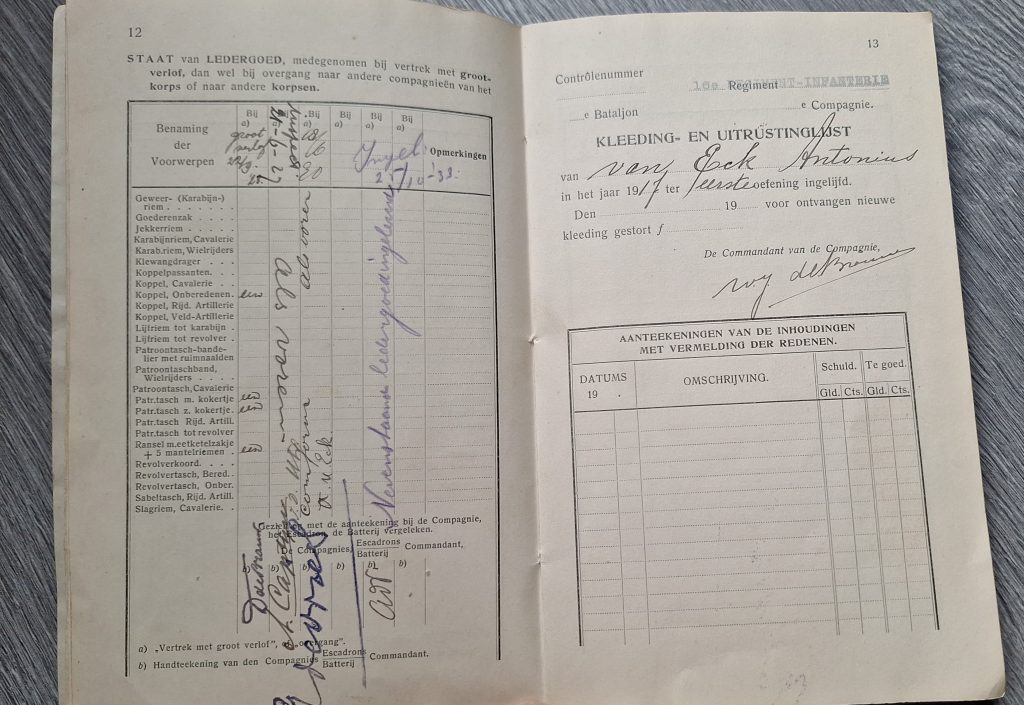 12
STAAT van LEDERGOED, medegenomen bij vertrek met groot-
verlof, dan wel bij overgang naar andere compagnieën van het
korps of naar andere korpsen.
Benaming
der
Voorwerpen
Bij
a)
groot
verlof
Bij
a)
Bij
a)
Bij
a)
Bij
a)
Bij
a)
Opmerkingen
Geweer- (Karabijn-)
riem
Goederenzak
Jekkerriem
Karabijnriem, Cavalerie
Karab.riem, Wielrijders
Klewangdrager
Koppelpassanten.
Koppel, Cavalerie
Koppel, Onberedenen. een
Koppel, Rijd. Artillerie
Koppel, Veld-Artillerie
Lijfriem tot karabijn
Lijfriem tot revolver
Patroontasch-bande-
lier met ruimnaalden
Patroontaschband,
Wielrijders
Patroontasch, Cavalerie
Patr.tasch m. kokertje een
Patr.tasch z. kokertje. een
Patr.tasch Rijd. Artill.
Patr.tasch tot revolver
Ransel m.eetketelzakje
+ 5 mantelriemen een
Revolverkoord.
Revolvertasch, Bered.
Revolvertasch, Onber.
Sabeltasch, Rijd. Artill.
Slagriem, Cavalerie.
als voren
als voren
conform
A v Eck
Nevenstaande ledergoed ingeleverd
Gezien en met de aanteekening bij de Compagnie,
het Escadron de Batterij vergeleken.
Compagnies, Escadrons Batterij Commandant,
b) b) b) b) b)
a) „Vertrek met groot verlof", of „overgang".
b) Handteekening van den Compagnies Escadrons Batterij Commandant.
13
Contrôlenummer
16e REGIMENT-INFANTERIE
Regiment
e Bataljon e Compagnie.
KLEEDING- EN UITRUSTINGLIJST
van van Eck Antonius
in het jaar 1917 ter eerste oefening ingelijfd.
Den 19 voor ontvangen nieuwe
kleeding gestort ƒ
De Commandant van de Compagnie,
AANTEEKENINGEN VAN DE INHOUDINGEN
MET VERMELDING DER REDENEN.
DATUMS
19 .
OMSCHRIJVING.
Schuld. Te goed.
Gld. Cts. Gld. Cts.